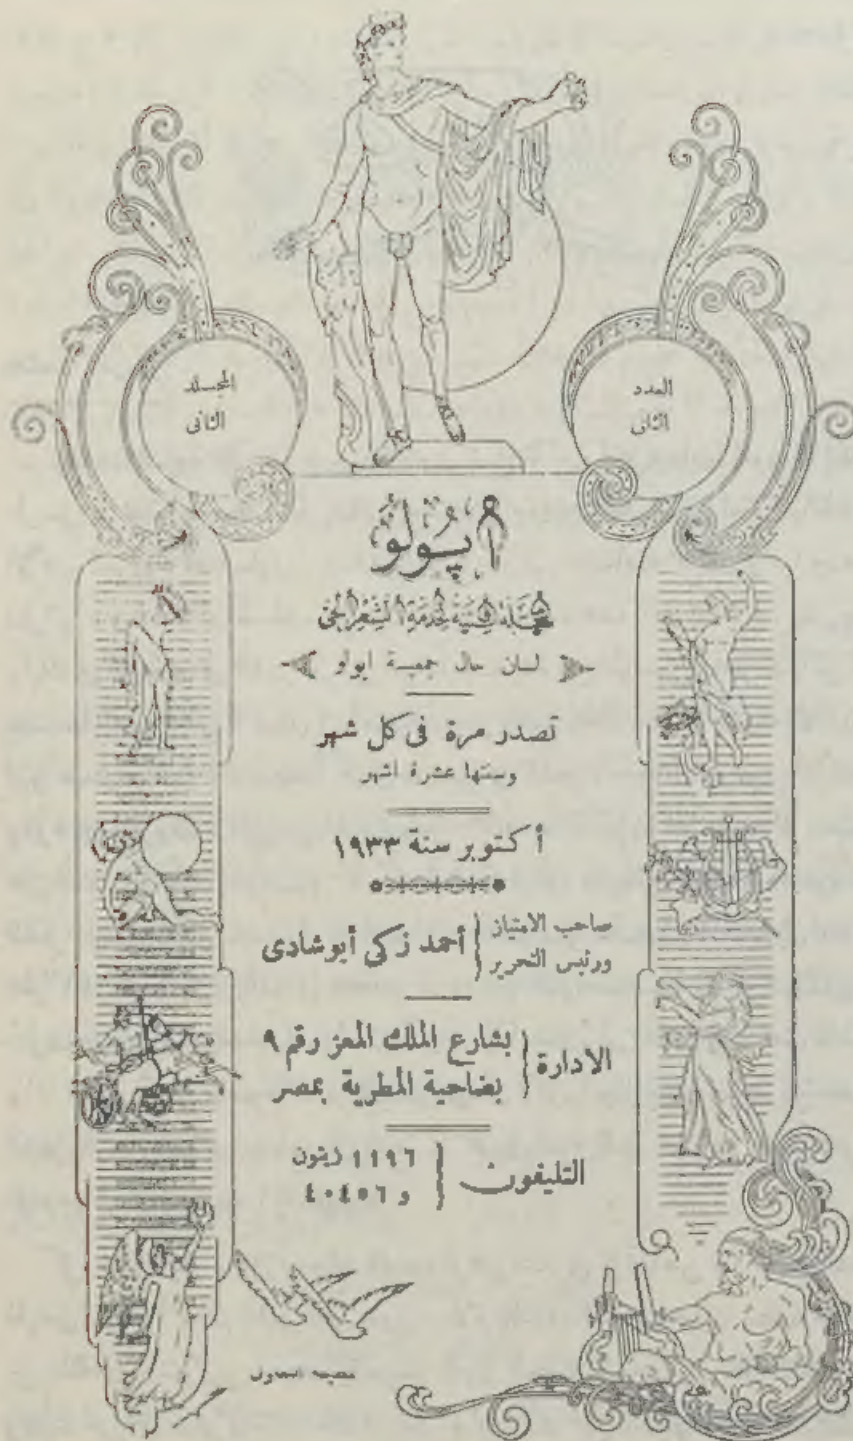 العدد
الثانى
المجلد
الثانى
أپولو
مجلة فنية لخدمة الشعر الحى
لسان حال جمعية ابولو
تصدر مرة فى كل شهر
وسنتها عشرة اشهر
أكتوبر سنة ١٩٣٣
صاحب الامتياز
ورئيس التحرير
أحمد زكى أبوشادى
الادارة
بشارع الملك المعز رقم ٩
بضاحية المطرية بمصر
التليفون
١١٩٦ زيتون
و ٤٠٤٥٦
مطبعة التعاون